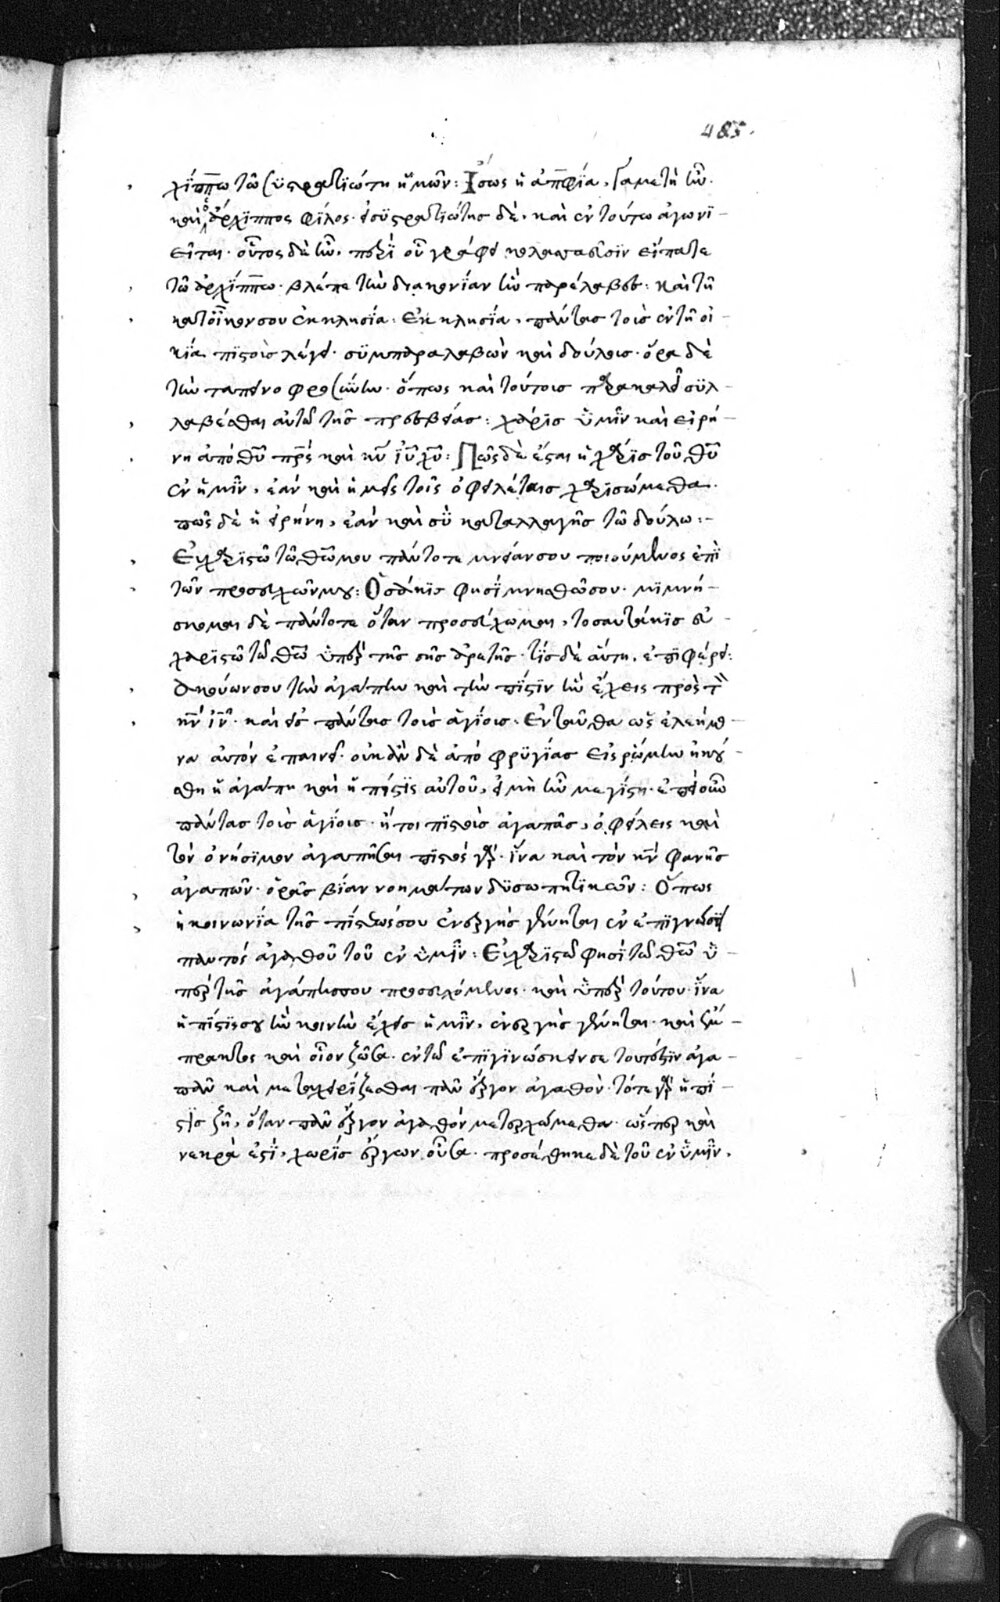 485.
χίππω τῶ συστρατιώτη ἡμῶν: Ἴσως ἡ ἀπφία, γαμετὴ ἦν.
καὶ ὁ ἄρχιππος φίλος. ὁ συστρατιώτης δὲ, καὶ ἐν τούτω ἀγωνι-
εῖται. οὗτος δὲ ἦν, περὶ οὗ γράφει κολασσαεῦσιν εἴπατε
τῶ ἀρχίππω. βλέπε τὴν διακονίαν ἣν παρέλαβες: καὶ τῆ
κατοῖκον σου ἐκκλησία: Ἐκκλησία, πάντας τοὺς ἐν τῆ οἰ-
κία πιστοὺς λέγει. συμπαραλαβὼν καὶ δούλους. ὅρα δὲ
τὴν ταπεινοφροσύνην. ὅπως καὶ τούτους παρακαλεῖ συλ-
λαβέσθαι αὐτῶ τῆς πρεσβείας: χάρις ὑμῖν καὶ εἰρή-
νη ἀπὸ θῦ πρς καὶ κυ ἰυ χυ: Πῶς δὲ ἔσται ἡ χάρις τοῦ θῦ
ἐν ἡμῖν, ἐὰν καὶ ἡμεῖς τοῖς ὀφειλέταις χαρισώμεθα.
πῶς δὲ ἡ εἰρήνη, ἐὰν καὶ σὺ καταλλαγῆς τῶ δούλω:-
Εὐχαριστῶ τῶ θεῶ μου πάντοτε μνείαν σου ποιούμενος ἐπὶ
τῶν προσευχῶν μου: Ὁσάκις φησί μνησθῶ σου. μιμνή-
σκομαι δὲ πάντοτε ὅταν προσεύχωμαι, τοσαυτάκις εὐ-
χαριστῶ τῶ θεῶ ὑπὲρ τῆς σῆς ἀρετῆς. τίς δὲ αὕτη, ἐπιφέρει:
Ἀκούων σου τὴν ἀγάπην καὶ τὴν πίστιν ἣν ἔχεις πρὸς τὸν
κν ιν. καὶ εἰς πάντας τοὺς ἁγίους. Ἐνταῦθα ὡς ἐλεήμο-
να αὐτὸν ἐπαινεῖ. οὐκ ἂν δὲ ἀπὸ φρυγίας εἰς ρώμην ἠκού-
σθη ἡ ἀγάπη καὶ ἡ πίστις αὐτοῦ, εἰ μὴ ἦν μεγίστη. ἐπεὶ οὖν
πάντας τοὺς ἁγίους ἤτοι πιστοὺς ἀγαπᾶς, ὀφείλεις καὶ
τὸν ὀνήσιμον ἀγαπῆσαι πιστὸς γὰρ. ἵνα καὶ τὸν κν φανῆς
ἀγαπῶν. ὁρᾶς βίαν νοημάτων δυσωπητικῶν: Ὅπως
ἡ κοινωνία τῆς πίστεώς σου ἐνεργὴς γένηται ἐν ἐπιγνώσει
παντὸς ἀγαθοῦ τοῦ ἐν ὑμῖν: Εὐχαριστῶ φησί τῶ θεῶ ὑ-
πὲρ τῆς ἀγάπης σου προσευχόμενος. καὶ ὑπὲρ τούτου. ἵνα
ἡ πίστις σου ἣν κοινὴν ἔχεις ἡμῖν, ἐνεργὴς γένηται. καὶ ἔμ-
πρακτος καὶ οἷον ζῶσα. ἐν τῶ ἐπιγινώσκειν σε τουτέστιν ἀγα-
πᾶν καὶ μεταχειρίζεσθαι πᾶν ἔργον ἀγαθὸν. τότε γὰρ ἡ πί-
στις ζῆ, ὅταν πᾶν ἔργον ἀγαθὸν μετερχώμεθα. ὥσπερ καὶ
νεκρὰ ἐστί, χωρὶς ἔργων οὖσα. προσέθηκε δὲ τοῦ ἐν ὑμῖν,